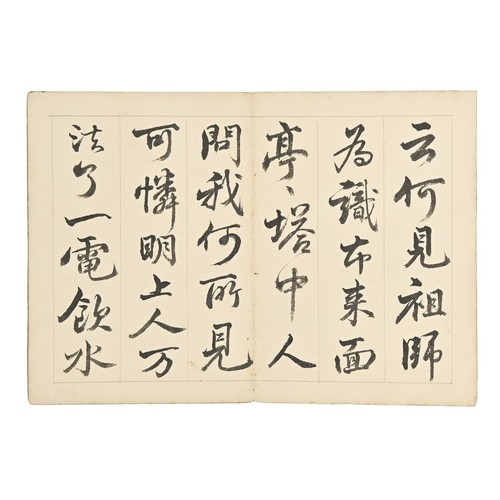 云何見祖師
為識本來面
亭〻塔中人
問我何所見
可憐明上人万
法了一電飲水